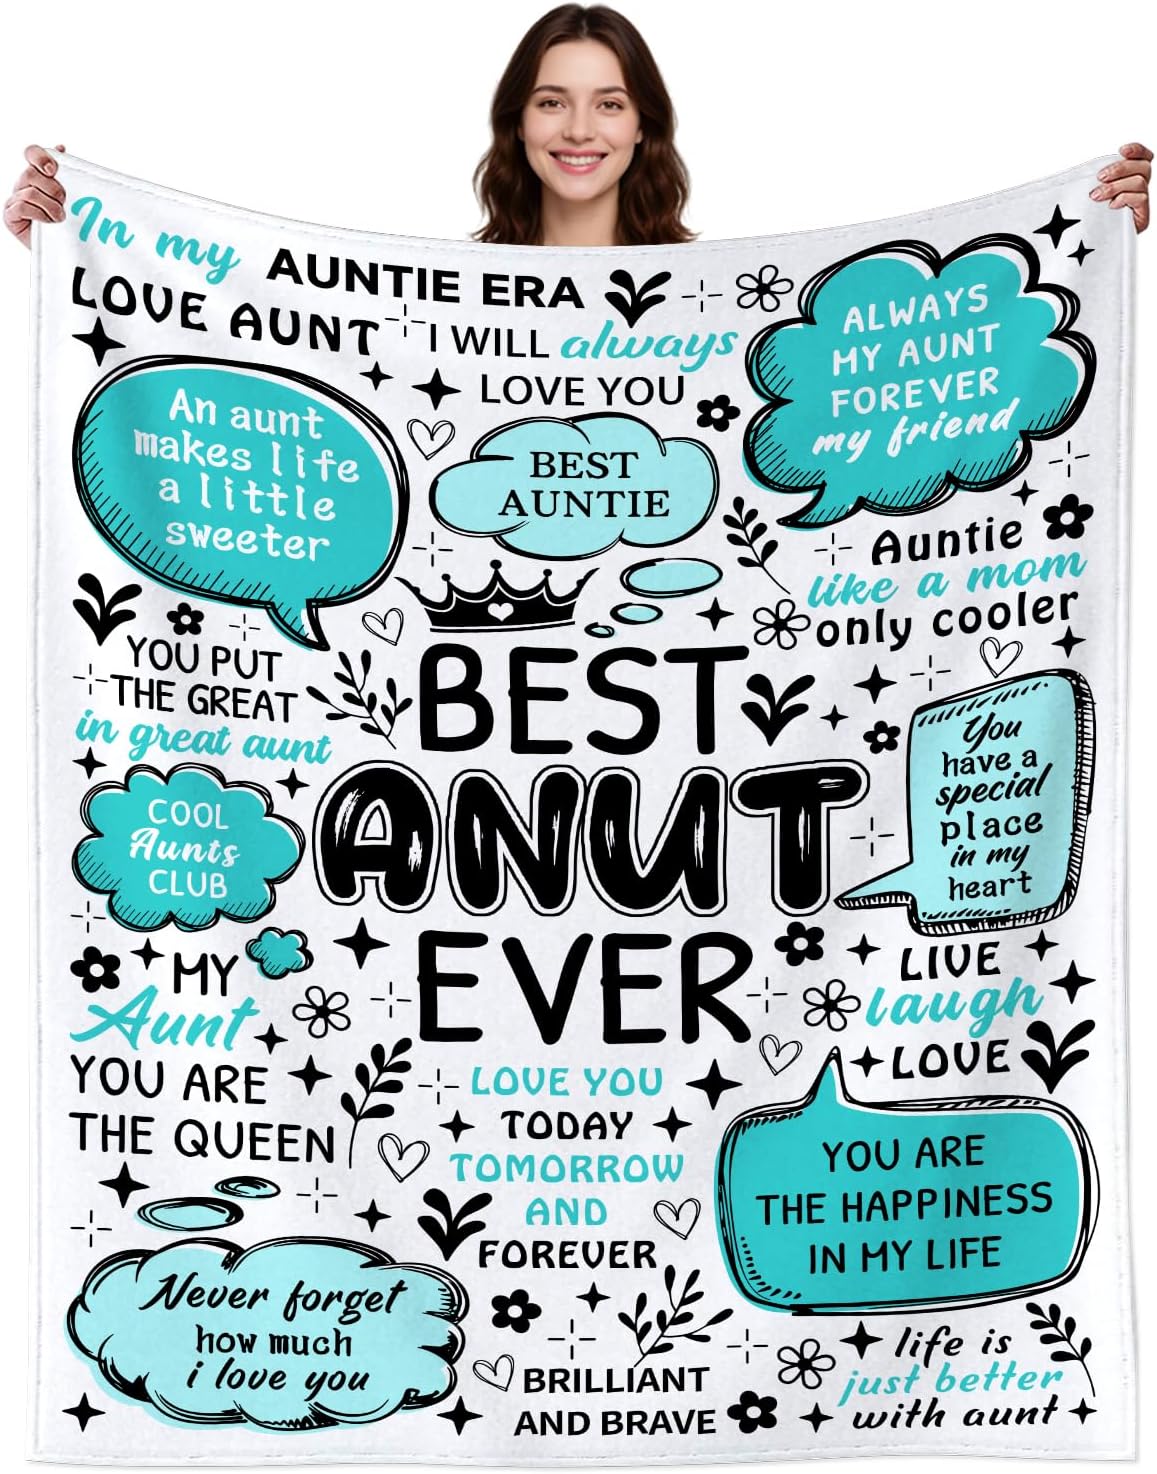 In my AUNTIE ERA
LOVE AUNT
I WILL always
LOVE YOU
ALWAYS
MY AUNT
FOREVER
my friend
An aunt
makes life
a little
sweeter
BEST
AUNTIE
Auntie
like a mom
only cooler
YOU PUT
THE GREAT
in great aunt
BEST
ANUT
EVER
You
have a
special
place
in my
heart
COOL
Aunts
CLUB
MY
Aunt
YOU ARE
THE QUEEN
LIVE
laugh
LOVE
LOVE YOU
TODAY
TOMORROW
AND
FOREVER
YOU ARE
THE HAPPINESS
IN MY LIFE
Never forget
how much
i love you
BRILLIANT
AND BRAVE
life is
just better
with aunt